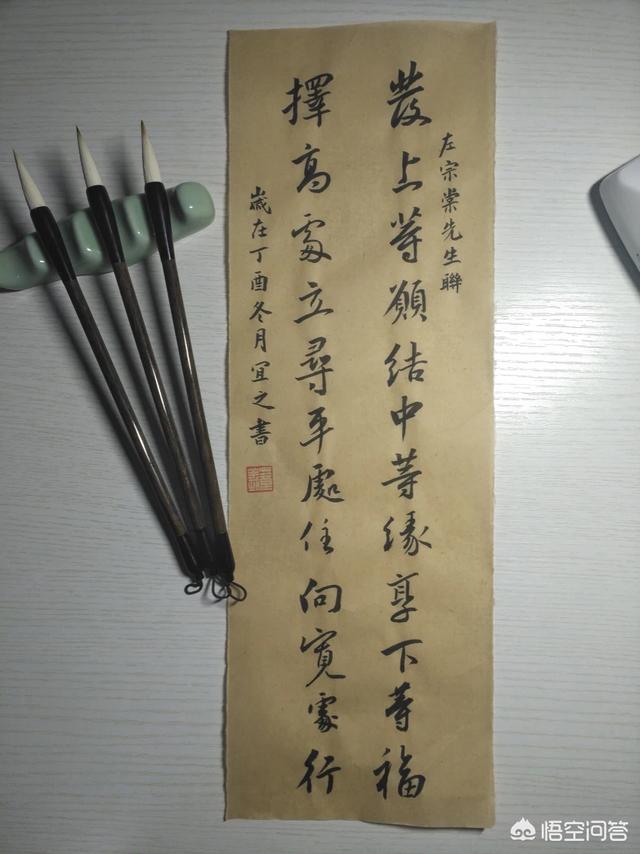 左宗棠先生聯
發上等願結中等緣享下等福
擇高處立尋平處住向寬處行
歲在丁酉冬月宜之書
悟空问答